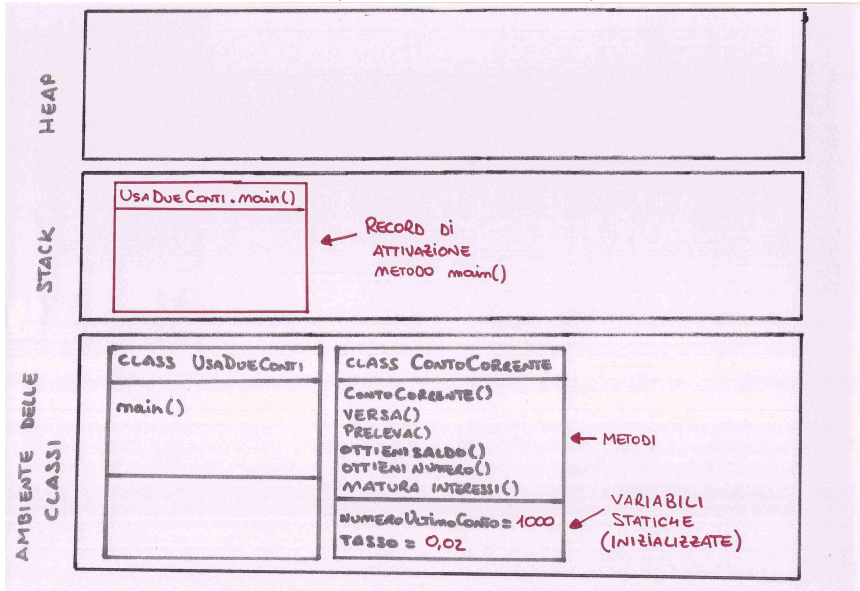 HEAP
STACK
UsaDueConti.main()
RECORD DI
ATTIVAZIONE
METODO main()
AMBIENTE DELLE
CLASSI
CLASS UsaDueConti
main()
CLASS ContoCorrente
ContoCorrente()
VERSA()
PRELEVA()
OTTIENI SALDO()
OTTIENI NUMERO()
MATURA INTERESSI()
METODI
NUMEROUltimoConto = 1000
TASSO = 0,02
VARIABILI
STATICHE
(INIZIALIZZATE)